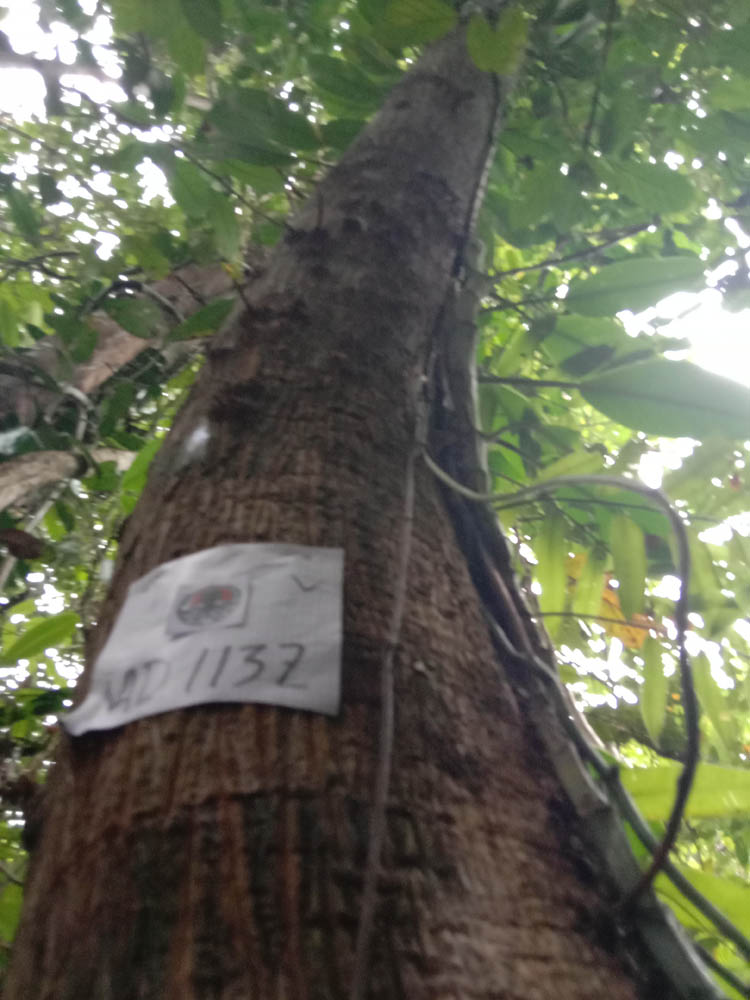 MD 1137